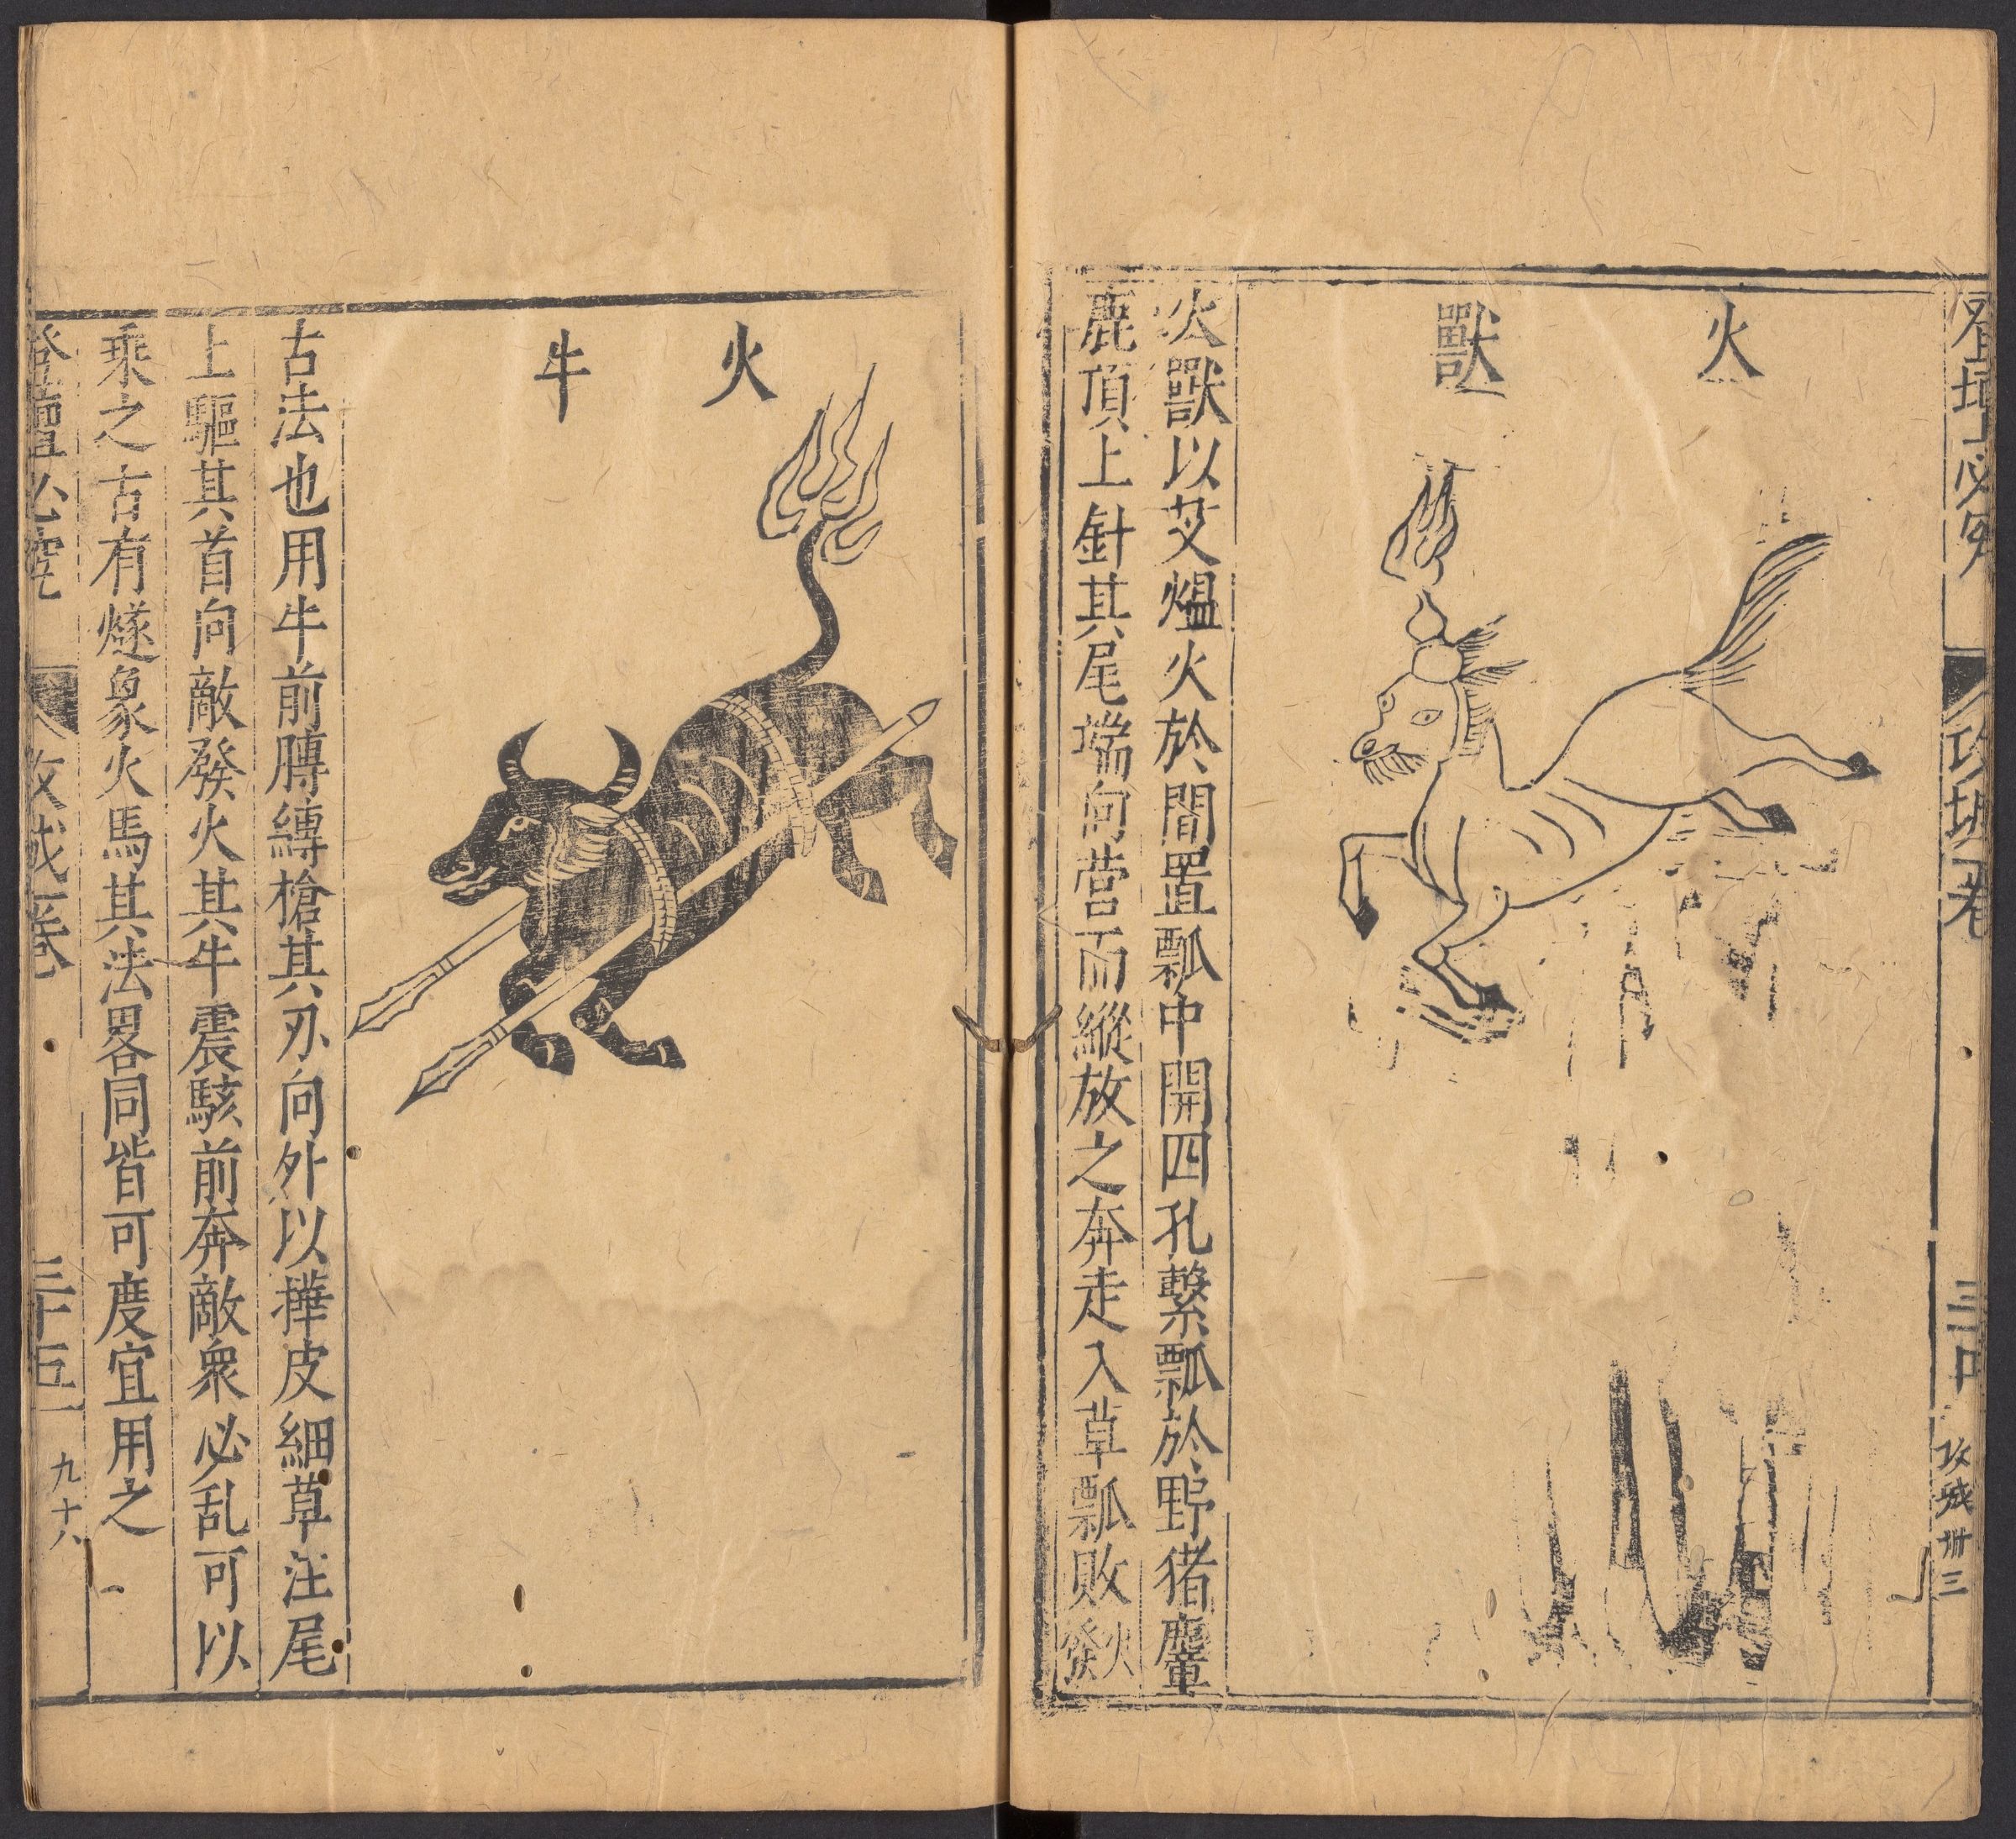 登壇必究
攻城卷
三十四
攻城卅三
火獸
火獸以艾煴火於間置瓢中開四孔繫瓢於野猪麞
鹿頂上針其尾端向营而縱放之奔走入草瓢敗火發
火牛
古法也用牛前膊縳槍其刃向外以㩸皮細草注尾
上驅其首向敵發火其牛震駭前奔敵衆必乱可以
乘之古有燧象火馬其法畧同皆可度宜用之
登壇必究
攻城卷
三十五
九十八